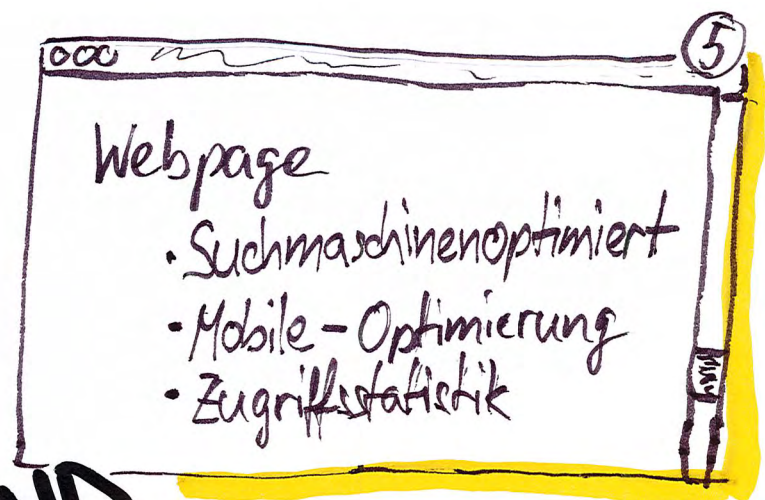 5
Webpage
· Suchmaschinenoptimiert
· Mobile-Optimierung
· Zugriffsstatistik